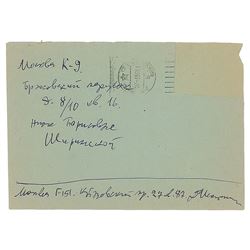 Москва К-9,
Брюсовский переулок
д. 8/10 кв. 16.
Нине Борисовне
Ширинской
Москва Г-151. Кутузовский пр. 27 кв. 87.